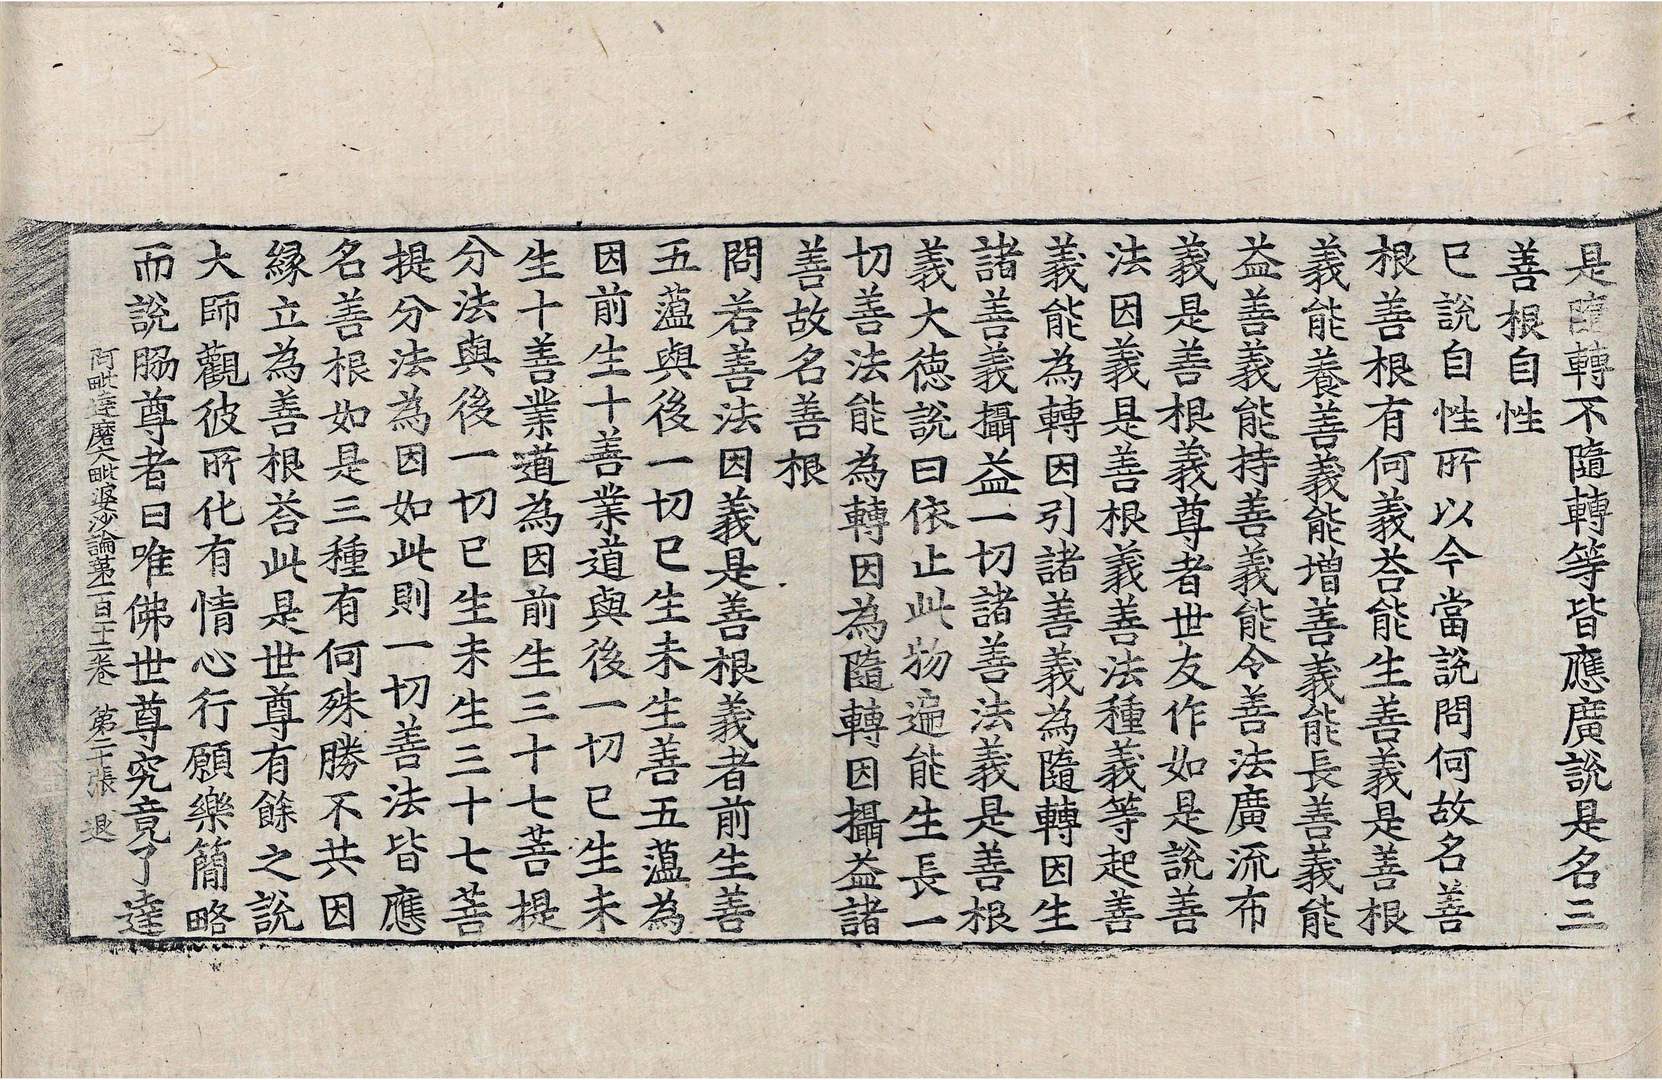 是隨轉不隨轉等皆應廣說是名三
善根自性
已說自性所以今當說問何故名善
根善根有何義荅能生善義是善根
義能養善義能增善義能長善義能
益善義能持善義能令善法廣流布
義是善根義尊者世友作如是說善
法因義是善根義善法種義等起善
義能為轉因引諸善義為隨轉因生
諸善義攝益一切諸善法義是善根
義大德說曰依止此物遍能生長一
切善法能為轉因為隨轉因攝益諸
善故名善根
問若善法因義是善根義者前生善
五蘊與後一切已生未生善五蘊為
因前生十善業道與後一切已生未
生十善業道為因前生三十七菩提
分法與後一切已生未生三十七菩
提分法為因如此則一切善法皆應
名善根如是三種有何殊勝不共因
緣立為善根荅此是世尊有餘之說
大師觀彼所化有情心行願樂簡略
而說脇尊者曰唯佛世尊究竟了達
阿毗達磨大毗婆沙論第一百十二卷 第二十張 退